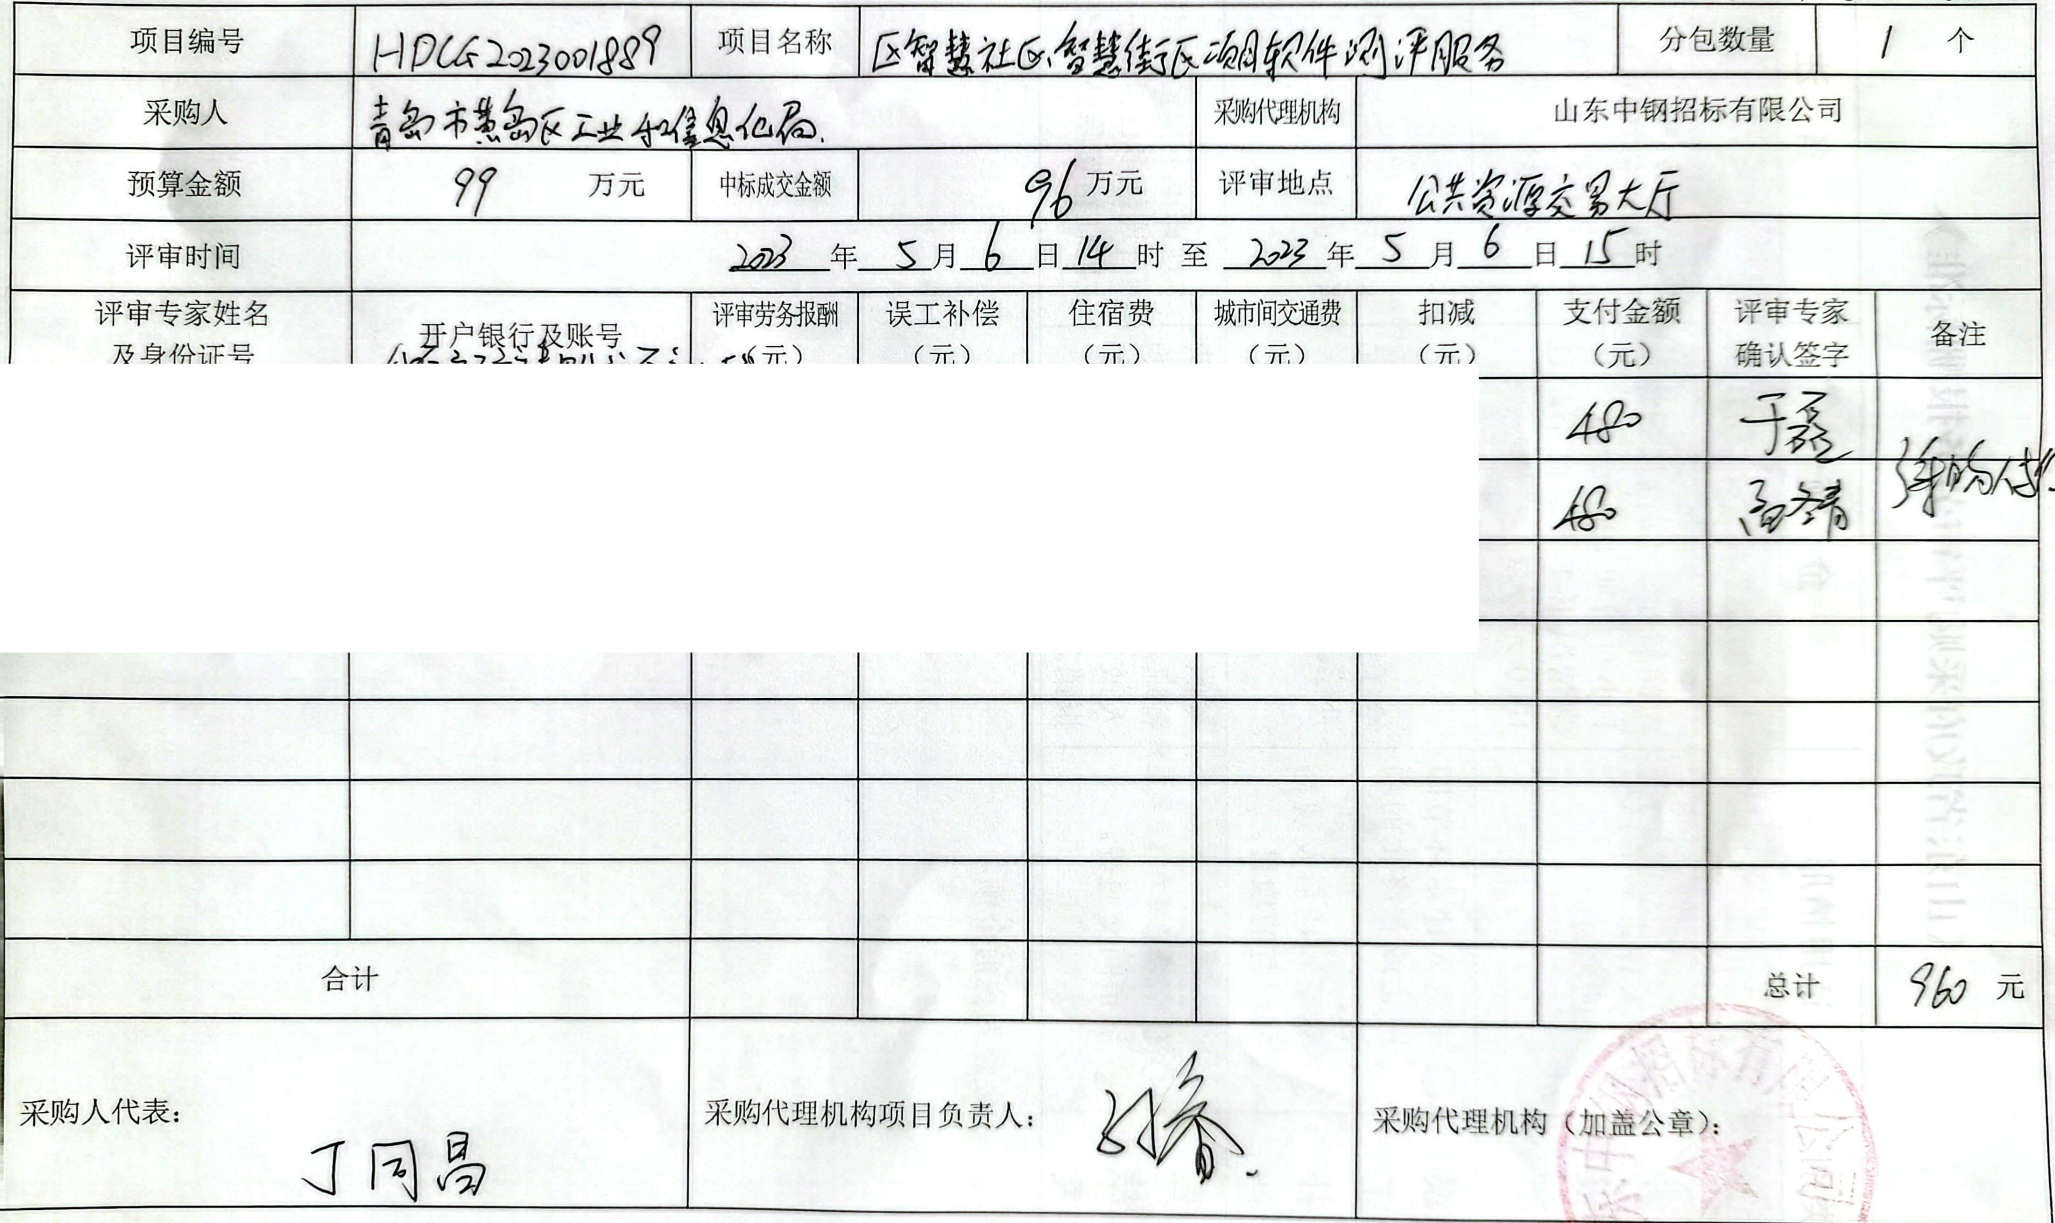 项目编号 HDCG2023001889 项目名称 区智慧社区、智慧街区项目软件测评服务 分包数量 1 个
采购人 青岛市黄岛区工业和信息化局. 采购代理机构 山东中钢招标有限公司
预算金额 99 万元 中标成交金额 96 万元 评审地点 公共资源交易大厅
评审时间 2023 年 5 月 6 日 14 时 至 2023 年 5 月 6 日 15 时
评审专家姓名 开户银行及账号 评审劳务报酬 误工补偿 住宿费 城市间交通费 扣减 支付金额 评审专家 备注
及身份证号 (元) (元) (元) (元) (元) (元) 确认签字
480 于磊
480 高冬青
合计 总计 960 元
采购人代表: 丁同昌 采购代理机构项目负责人: 采购代理机构(加盖公章):
东中钢招标有限公司